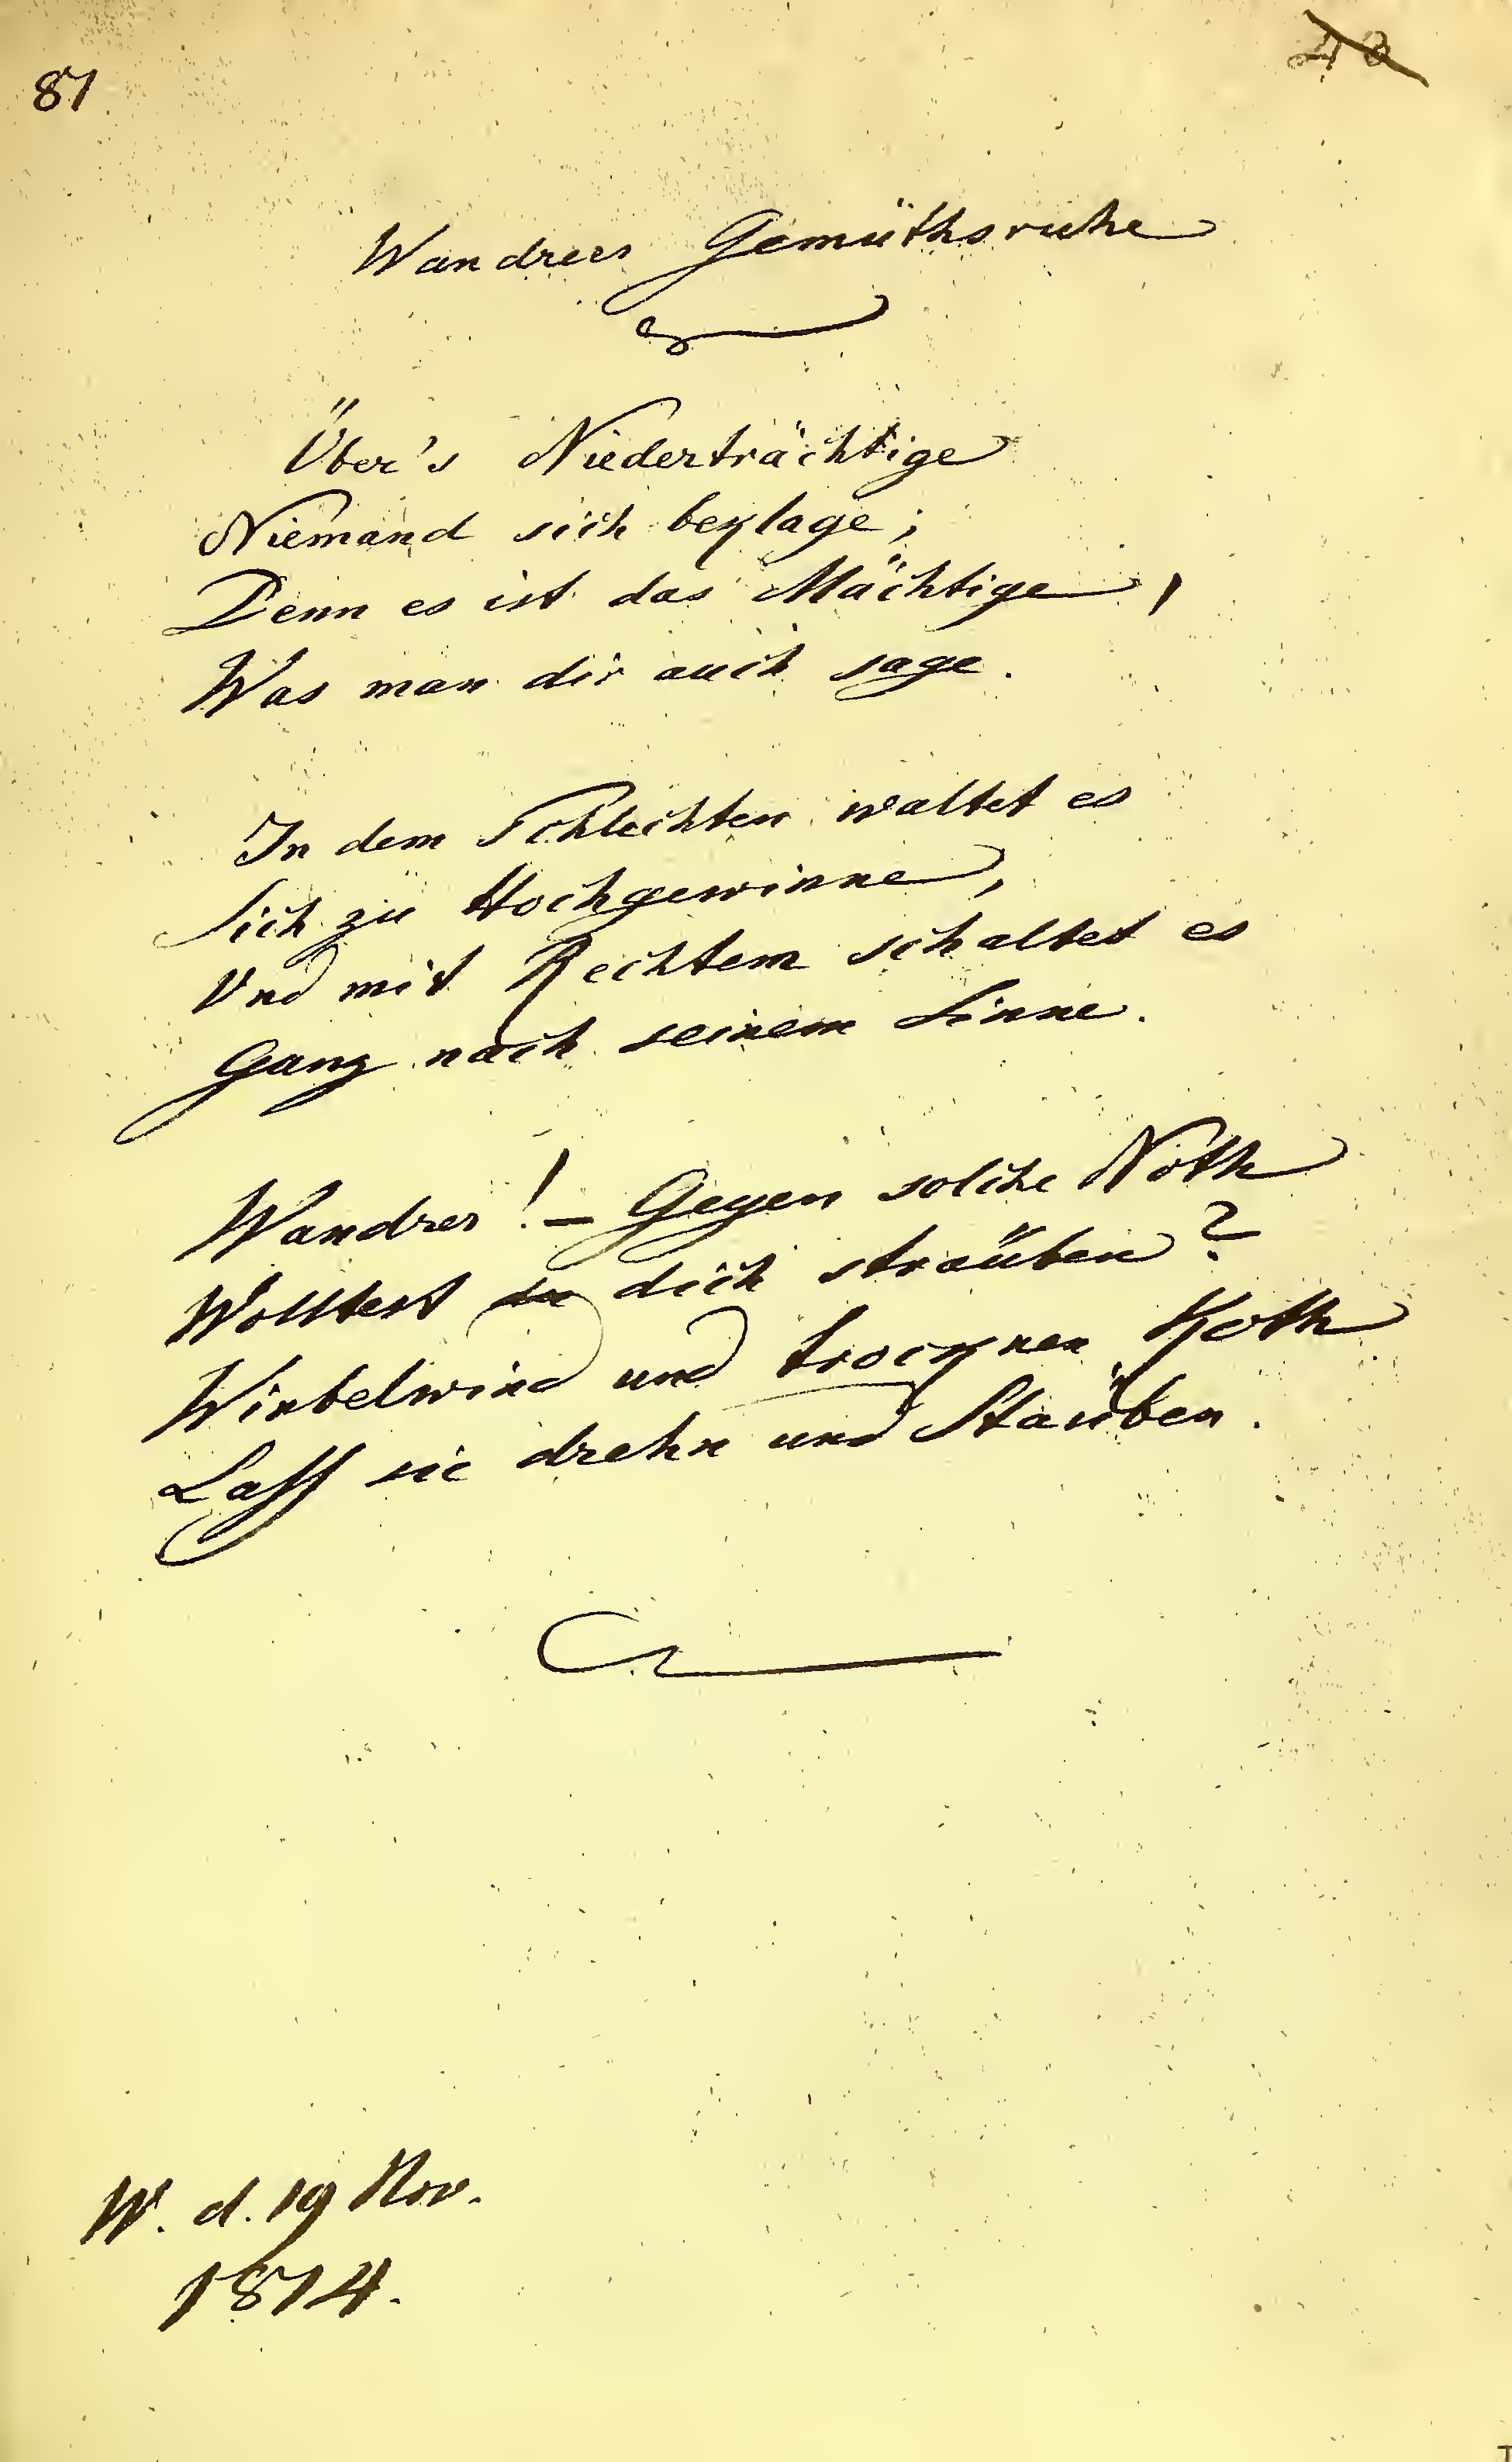 87
40
Wandrers Gemüthsruhe
Über's Niederträchtige
Niemand sich beklage;
Denn es ist das Mächtige,
Was man dir auch sage.
In dem Schlechten waltet es
Sich zu Hochgewinne,
Und mit Rechtem schaltet es
Ganz nach seinem Sinne.
Wandrer! – Gegen solche Noth
Wolltest du dich sträuben?
Wirbelwind und trocknen Koth
Lass sie drehn und Stäuben.
W. d. 19 Nov.
1814.